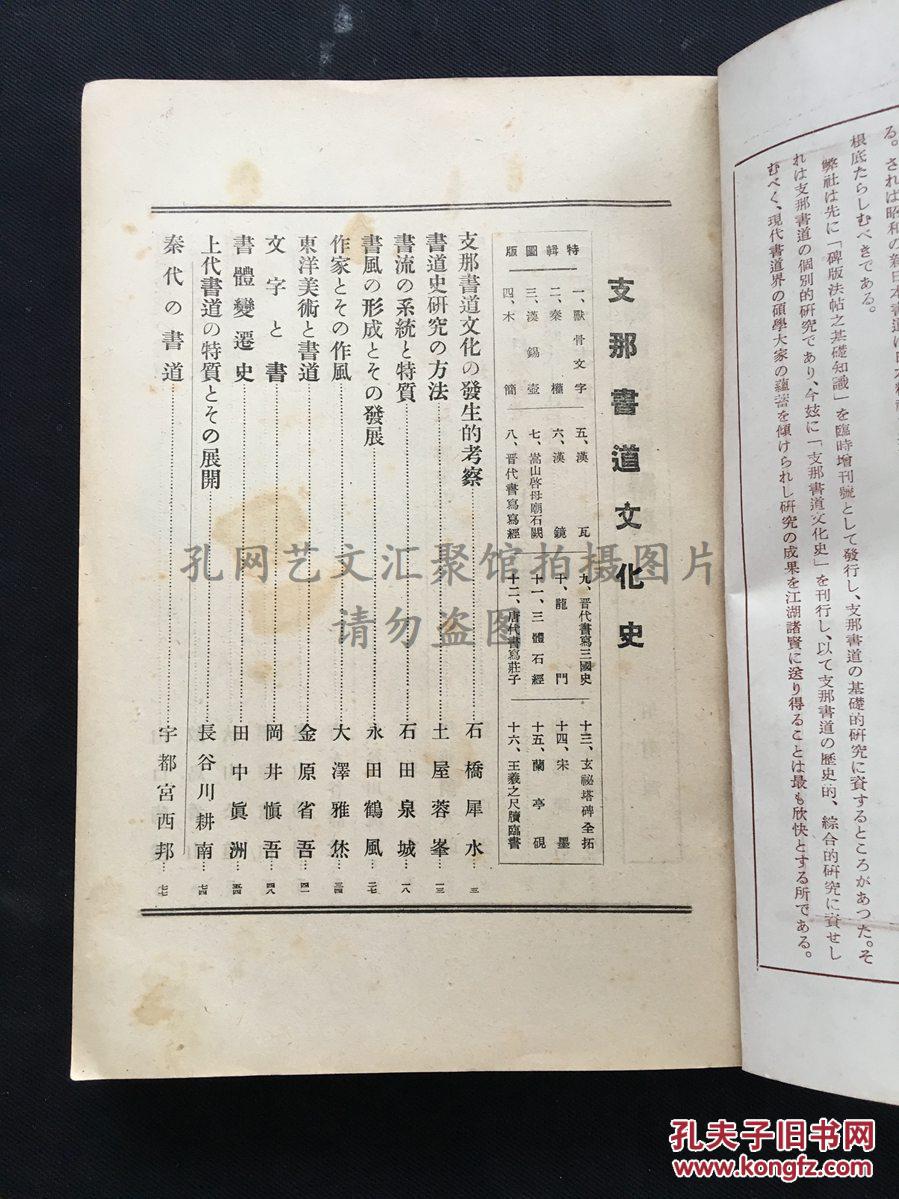 る。されば昭和の新日本書道は
根底たらしむべきである。
弊社は先に「碑版法帖之基礎知識」を臨時增刊號として發行し、支那書道の基礎的硏究に資するところがあつた。そ
れは支那書道の個別的硏究であり、今玆に「支那書道文化史」を刊行し、以て支那書道の歷史的、綜合的硏究に資せし
むべく、現代書道界の碩學大家の蘊蓄を傾けられし硏究の成果を江湖諸賢に送り得ることは最も欣快とする所である。
支那書道文化史
特輯圖版
一、獸骨文字
二、秦權
三、漢錫壺
四、木簡
五、漢瓦
六、漢鏡
七、嵩山啓母廟石闕
八、晋代書寫寫經
九、晋代書寫三國史
十、龍門
十一、三體石經
十二、唐代書寫莊子
十三、玄祕塔碑全拓
十四、宋墨
十五、蘭亭硯
十六、王羲之尺牘臨書
支那書道文化の發生的考察……石橋犀水…三
書道史硏究の方法……土屋蓉峯…一三
書流の系統と特質……石田泉城…一八
書風の形成とその發展……永田鶴風…二七
作家とその作風……大澤雅烋…三四
東洋美術と書道……金原省吾…四一
文字と書……岡井愼吾…四八
書體變遷史……田中眞洲…五四
上代書道の特質とその展開……長谷川耕南…七四
秦代の書道……宇都宮西邦…七七
孔网艺文汇聚馆拍摄图片
请勿盗图
孔夫子旧书网
www.kongfz.com